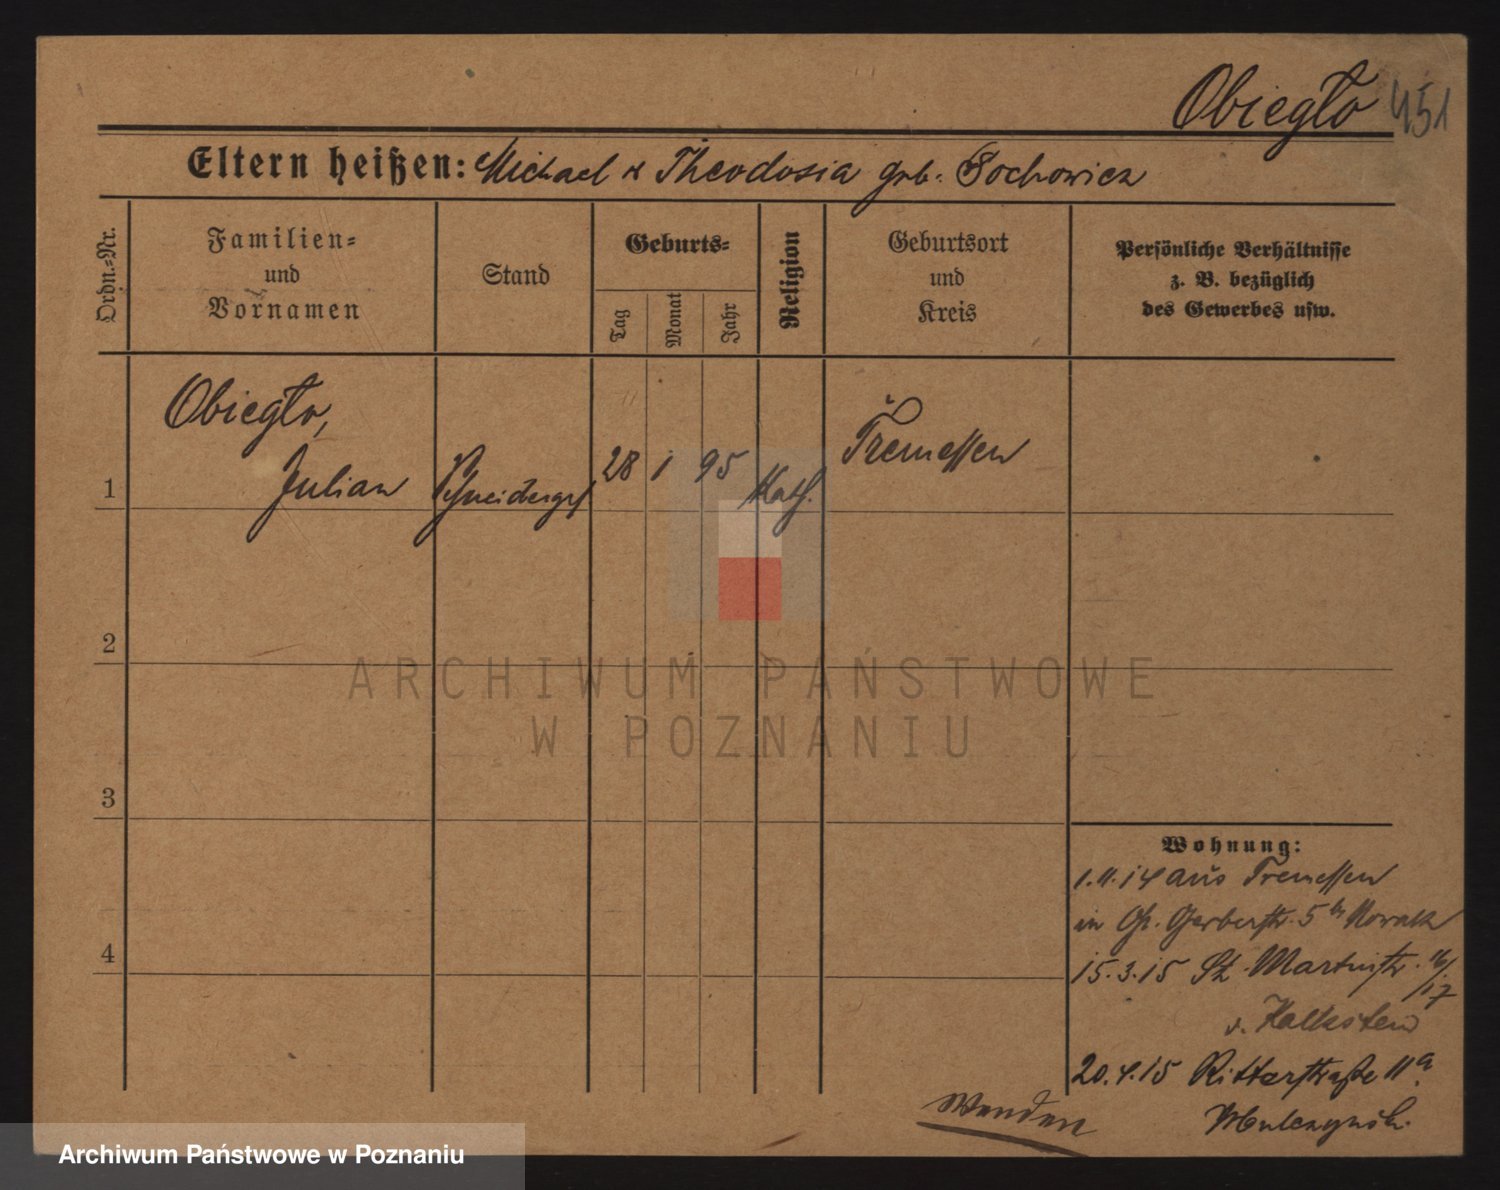 Obiegło 451
Eltern heißen: Michael & Theodosia geb. Sochowicz
Ordn.-Nr.
Familien-
und
Vornamen
Stand
Geburts-
Tag
Monat
Jahr
Religion
Geburtsort
und
Kreis
Persönliche Verhältnisse
z. B. bezüglich
des Gewerbes usw.
Obiegło,
1 Julian Schneiderges 28 1 95 Kath. Tremessen
2
ARCHIWUM PAŃSTWOWE
W POZNANIU
3
Wohnung:
1.11.14 aus Tremessen
in Gr. Gerberstr. 5 b Nowak
4
15.3.15 St. Martinstr. 16/17
v. Kalkstein
20.4.15 Ritterstraße 11a
Wenden
Archiwum Państwowe w Poznaniu